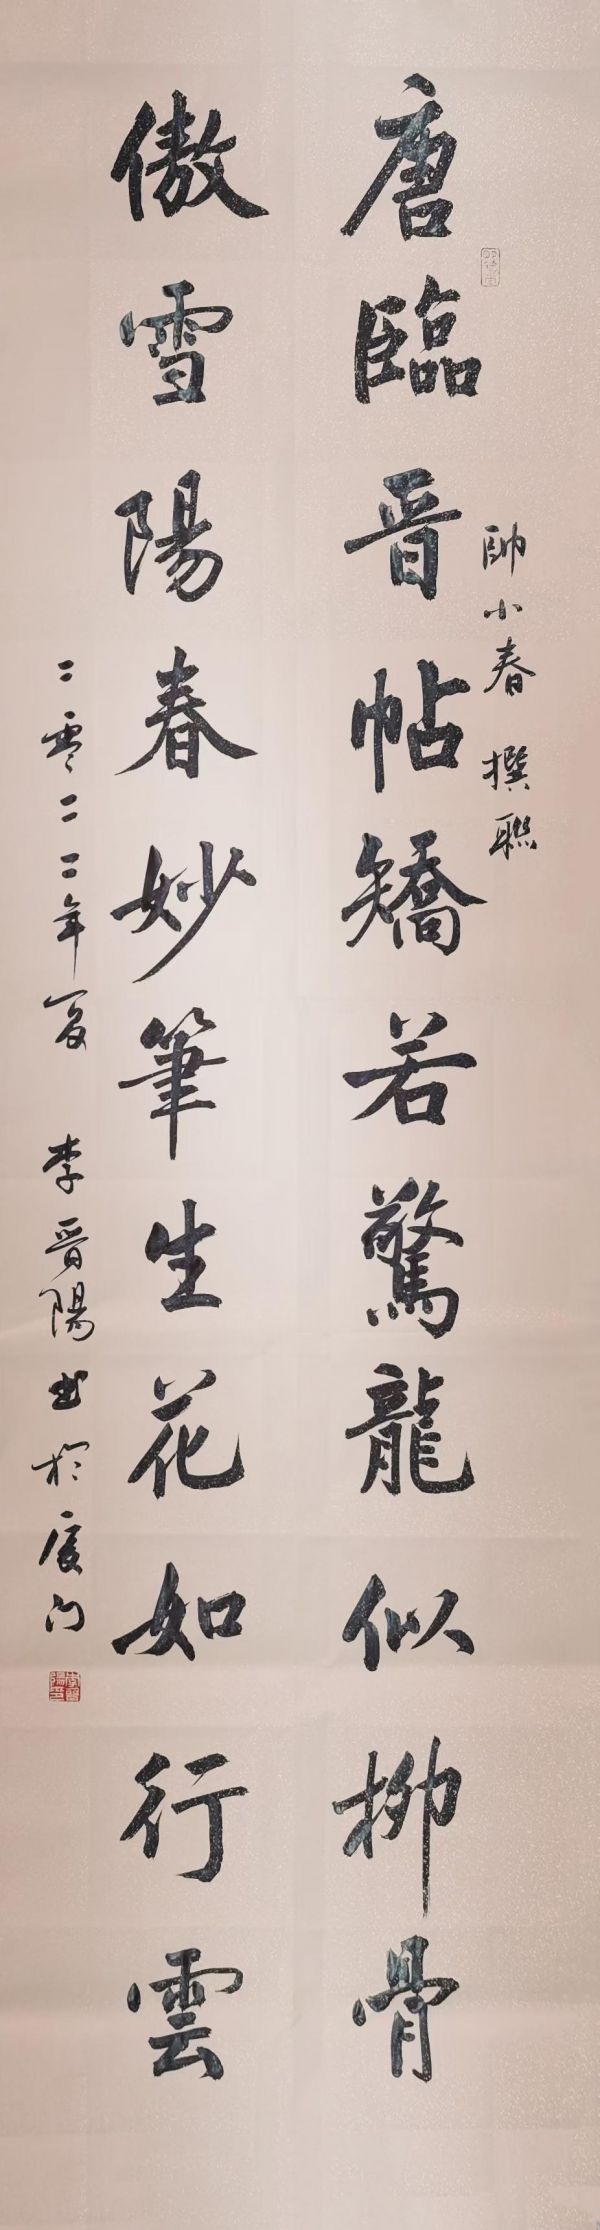 帥小春 撰聯
唐臨晋帖矯若驚龍似柳骨
傲雪陽春妙筆生花如行雲
二零二二年夏 李晋陽書於厦门